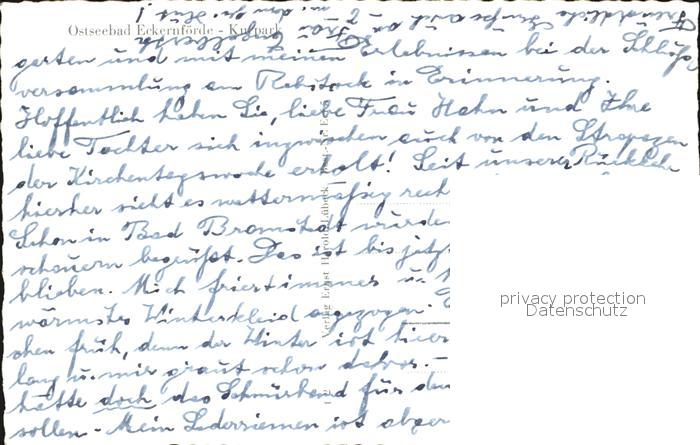 Freundliche Grüße auch an
Ostseebad Eckernförde - Kurpark
garten und mit meinen Erlebnissen bei der Schluß
versammlung am Rebstock in Erinnerung.
Hoffentlich haben Sie, liebe Frau Hahn und Ihre
liebe Tochter sich inzwischen auch von den Strapazen
der Kirchentagswoche erholt! Seit unserer Rückkehr
hierher sieht es wettermäßig rech
Schon in Bad Bramstedt wurde
schauern begrüßt. Das ist bis jetzt
blieben. Mich friert immer u.
wärmstes Winterkleid angezogen.
chen früh, denn der Winter ist hier
lang u. mir graut schon davor. -
hätte doch das Schnürband für den
sollen - Mein Lederriemen ist abger
Verlag Ernst Harold, Lübeck
privacy protection
Datenschutz